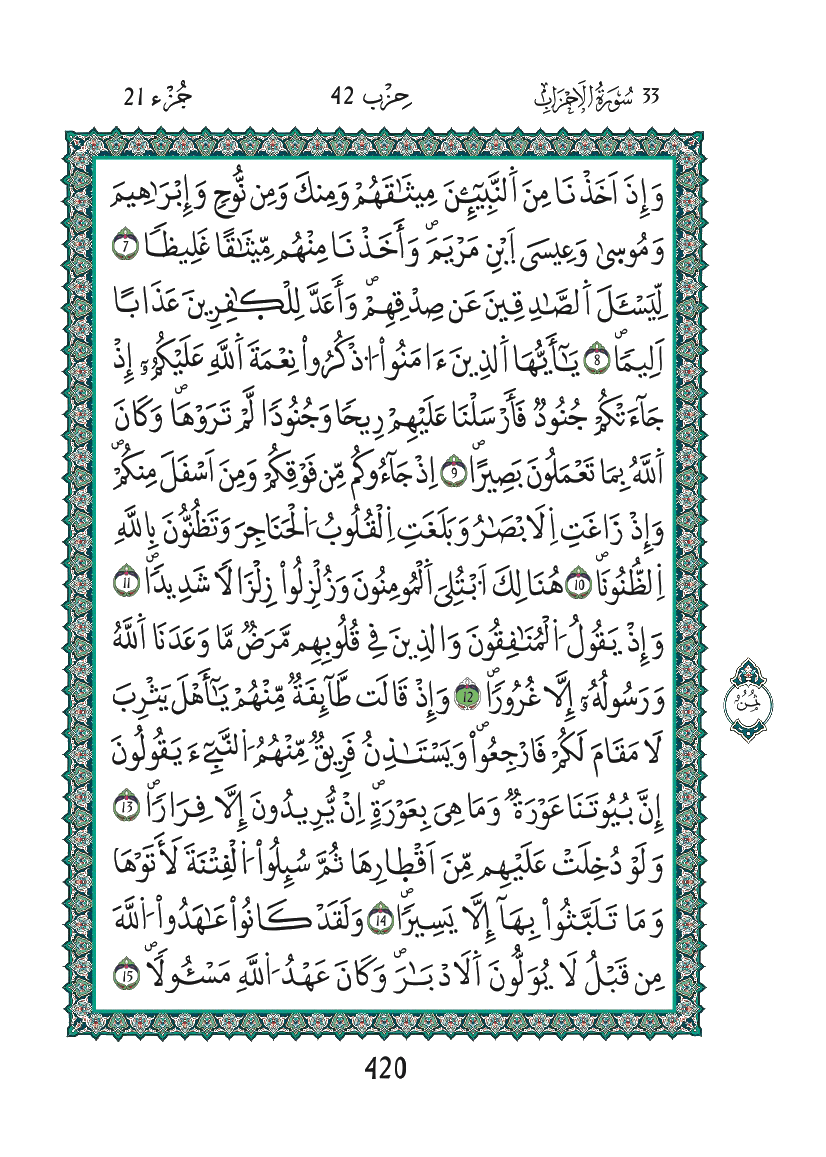 33 سُورَةُ الأَحْزَابِ
حِزْب 42
جُزْء 21
وَإِذَ اَخَذْنَا مِنَ اَلنَّبِيٓـِٕۧنَ مِيثَٰقَهُمْ وَمِنكَ وَمِن نُّوحٖ وَإِبْرَٰهِيمَ
وَمُوس۪يٰ وَعِيسَى اَبْنِ مَرْيَمَۖ وَأَخَذْنَا مِنْهُم مِّيثَٰقًا غَلِيظٗا 7
لِّيَسْـَٔلَ اَلصَّٰدِقِينَ عَن صِدْقِهِمْۖ وَأَعَدَّ لِلْكٰ۪فِرِينَ عَذَابًا
اَلِيمٗاۖ 8 يَٰٓأَيُّهَا اَلذِينَ ءَامَنُواْ اُ۟ذْكُرُواْ نِعْمَةَ اَللَّهِ عَلَيْكُمُۥٓ إِذْ
جَآءَتْكُمْ جُنُودٞ فَأَرْسَلْنَا عَلَيْهِمْ رِيحٗا وَجُنُودٗا لَّمْ تَرَوْهَاۖ وَكَانَ
اَللَّهُ بِمَا تَعْمَلُونَ بَصِيراًۖ 9 اِذْ جَآءُوكُم مِّن فَوْقِكُمْ وَمِنَ اَسْفَلَ مِنكُمْۖ
وَإِذْ زَاغَتِ اِلَابْصَٰرُ وَبَلَغَتِ اِلْقُلُوبُ اُ۬لْحَنَاجِرَ وَتَظُنُّونَ بِاللَّهِ
اِلظُّنُونَاۖ 10 هُنَالِكَ اَبْتُلِيَ اَلْمُومِنُونَ وَزُلْزِلُواْ زِلْزَالٗا شَدِيدٗاۖ 11
وَإِذْ يَقُولُ اُ۬لْمُنَٰفِقُونَ وَالذِينَ فِي قُلُوبِهِم مَّرَضٞ مَّا وَعَدَنَا اَللَّهُ
وَرَسُولُهُۥٓ إِلَّا غُرُورٗاۖ 12 وَإِذْ قَالَت طَّآئِفَةٞ مِّنْهُمْ يَٰٓأَهْلَ يَثْرِبَ
لَا مَقَامَ لَكُمْ فَارْجِعُواْۖ وَيَسْتَٰذِنُ فَرِيقٞ مِّنْهُمُ اُ۬لنَّبِيٓءَ يَقُولُونَ
إِنَّ بُيُوتَنَا عَوْرَةٞ وَمَا هِيَ بِعَوْرَةٍۖ اِنْ يُّرِيدُونَ إِلَّا فِرَارٗاۖ 13
وَلَوْ دُخِلَتْ عَلَيْهِم مِّنَ اَقْطارِهَا ثُمَّ سُئِلُواْ اُ۬لْفِتْنَةَ لَأَتَوْهَا
وَمَا تَلَبَّثُواْ بِهَآ إِلَّا يَسِيراٗۖ 14 وَلَقَدْ كَانُواْ عَٰهَدُواْ اُ۬للَّهَ
مِن قَبْلُ لَا يُوَلُّونَ اَلَادْبَٰرَۖ وَكَانَ عَهْدُ اُ۬للَّهِ مَسْـُٔولٗاۖ 15
ثُمُن
420